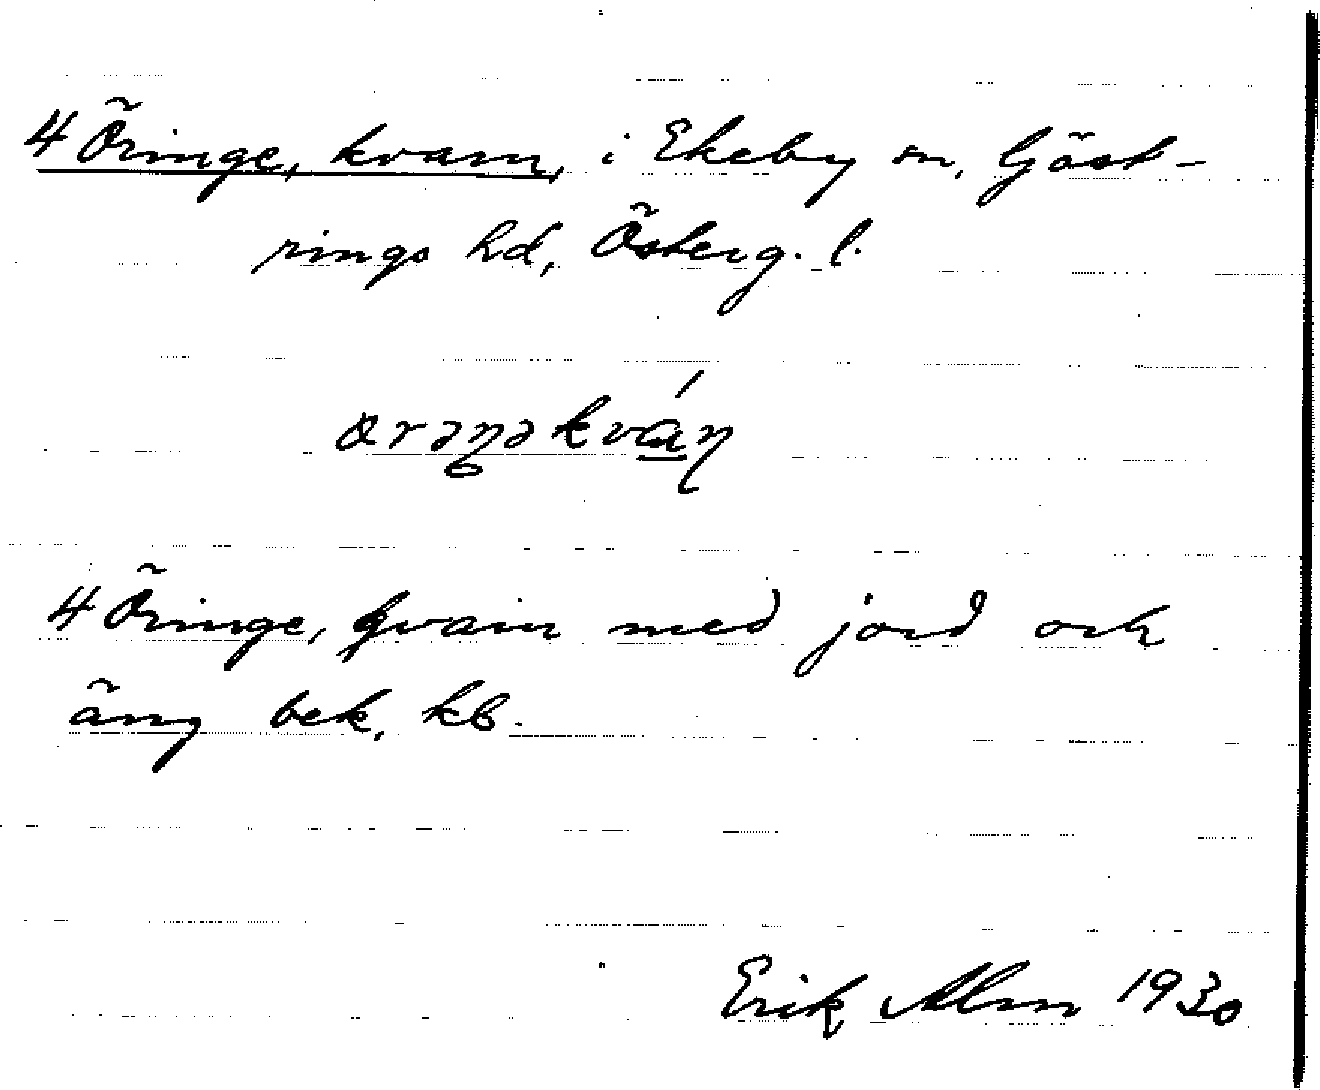 4 Öringe, kvarn, i Ekeby sn, Göst-
rings hd, Österg. l.
4 Öringe, qvarn med jord och
äng bek. kb.
Erik Alm 1930